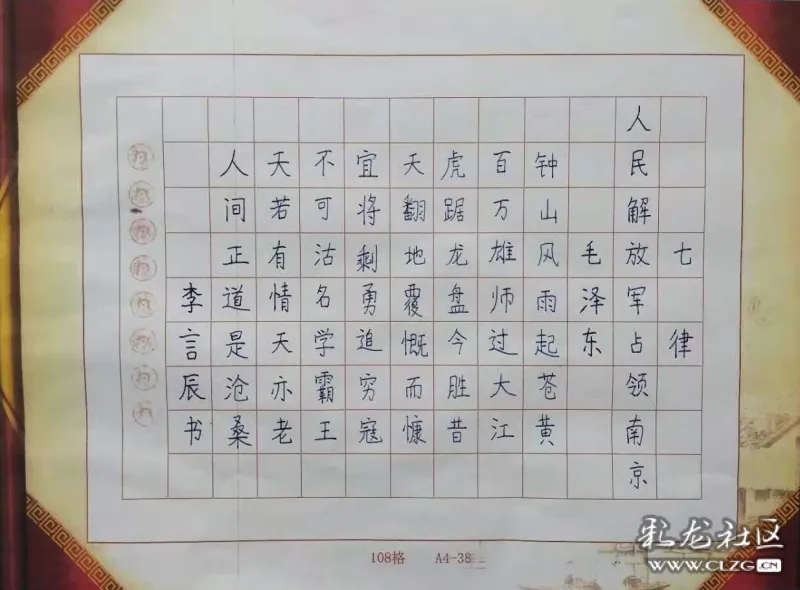 七律
人民解放军占领南京
毛泽东
钟山风雨起苍黄
百万雄师过大江
虎踞龙盘今胜昔
天翻地覆慨而慷
宜将剩勇追穷寇
不可沽名学霸王
天若有情天亦老
人间正道是沧桑
李言辰书
108格 A4-38
彩龙社区
WWW.CLZG.CN